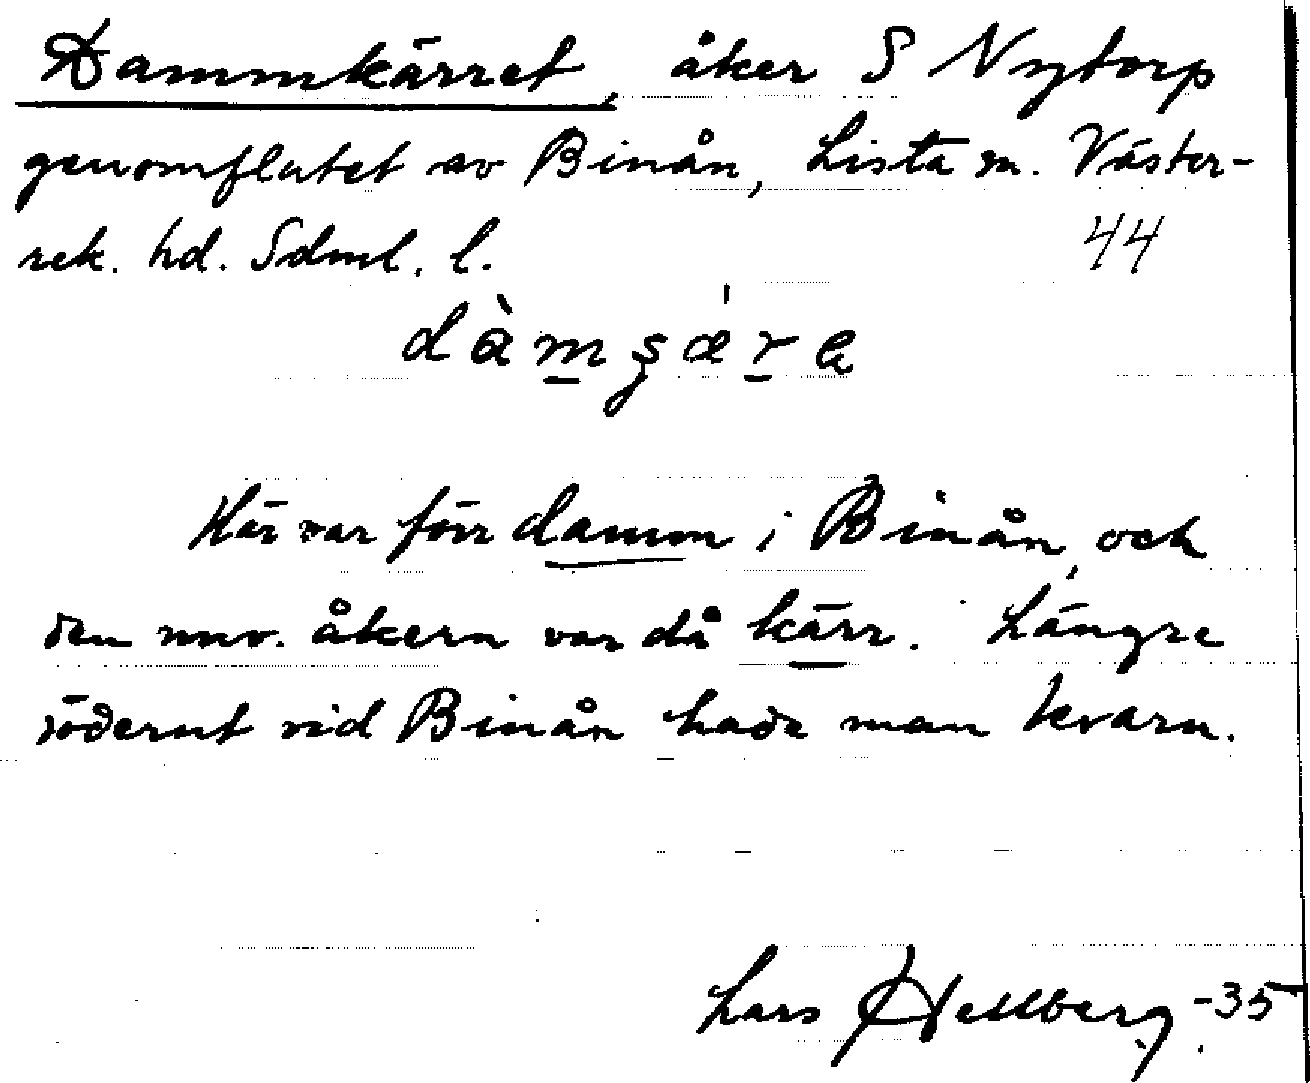 Dammkärret, åker S Nytorp
genomflutet av Binån, Lista sn. Väster-
rek. hd. Sdml. l.
44
dàmşǽra
Här var förr damm i Binån, och
den nuv. åkern var då kärr. Längre
söderut vid Binån hade man kvarn.
Lars Hellberg -35